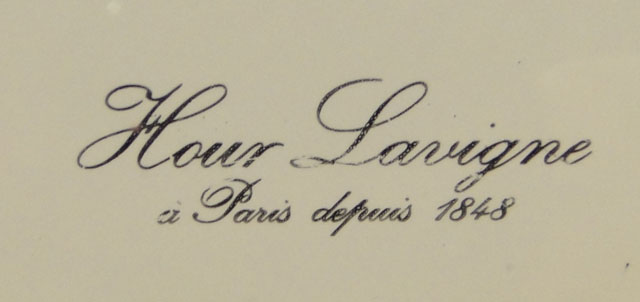 Hour Lavigne
à Paris depuis 1848